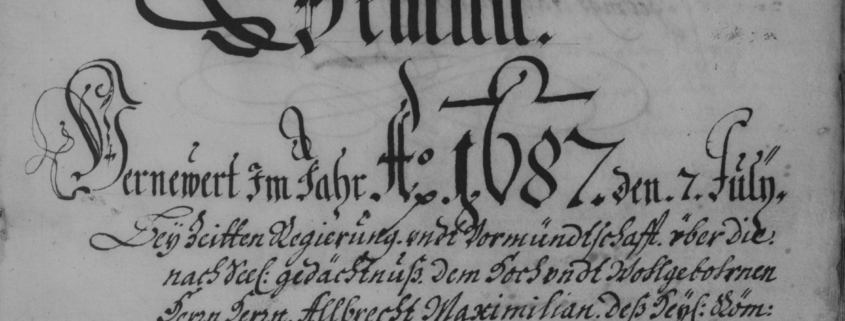 Vernewert Im Jahr Aō. 1687. den. 7. July.
Bey Zeitten Regierung. vndt Vormündtschafft. vber die.
nach Seel: gedächtnuß. dem Hoch vndt Wohlgebohrnen
Herrn Herrn. Allbrecht Maximilian. deß Heyl: Röm: